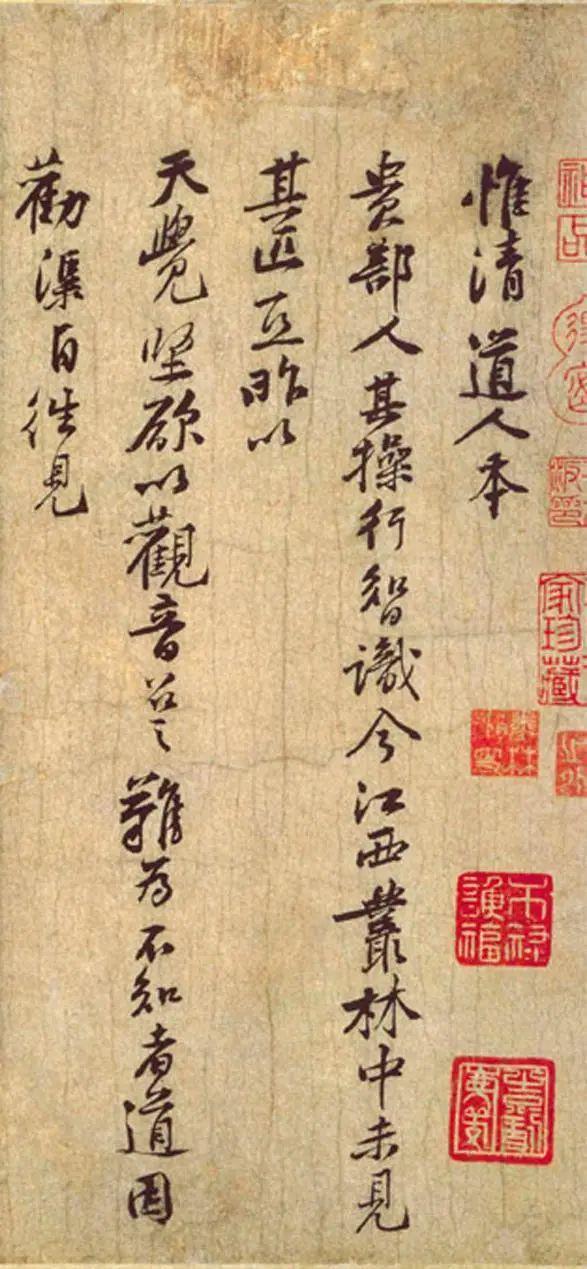 惟清道人本
貴部人其操行智識今江西叢林中未見
其匹亞昨以
天覺堅欲以觀音召之難為不知者道因
勸渠自徃見
家珍藏